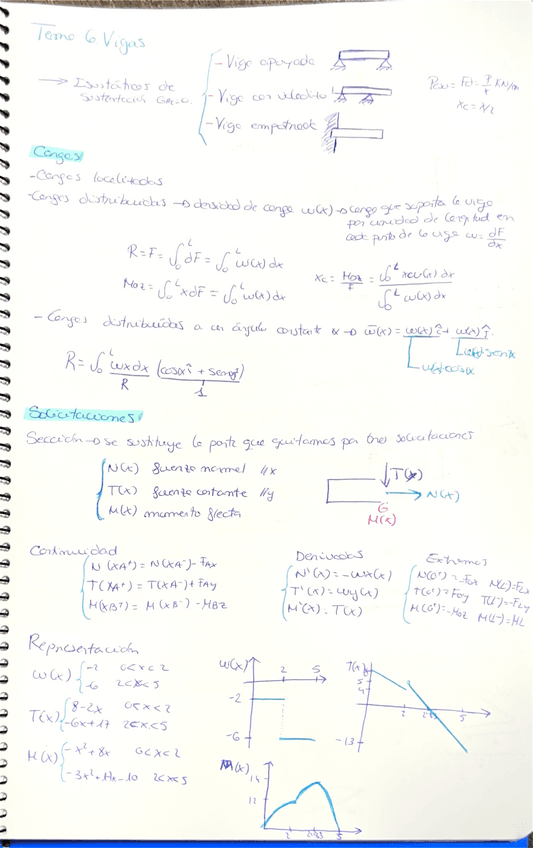 Tema 6 Vigas
→ Isostáticos de sustentación GH=0.
- Viga apoyada
- Viga con voladizo
- Viga empotrada
xc = x/2
Cargas
- Cargas localizadas
- Cargas distribuidas → densidad de carga ω(x) → carga que soporta la viga
por unidad de longitud en
cada punto de la viga ω = dF/dx
R = F = ∫₀ᴸ dF = ∫₀ᴸ ω(x) dx
Moz = ∫₀ᴸ x dF = ∫₀ᴸ ω(x) dx
xc = Moz/F = ∫₀ᴸ xω(x) dx / ∫₀ᴸ ω(x) dx
- Cargas distribuidas a un ángulo constante α → ω̄(x) = ω(x) î + ω(x) ĵ.
ω(x) senα
ω(x) cosα
R = ∫₀ᴸ ωx dx (cosα î + senα ĵ)
R
1
Solicitaciones
Sección → se sustituye la parte que quitamos por tres solicitaciones
N(x) fuerza normal //x
T(x) fuerza cortante //y
M(x) momento flector
T(x)
N(x)
G
M(x)
Continuidad
N(xA⁺) = N(xA⁻) - FAx
T(xA⁺) = T(xA⁻) + FAy
M(xB⁺) = M(xB⁻) - MBz
Derivadas
N'(x) = -ωx(x)
T'(x) = ωy(x)
M'(x) = T(x)
Extremos
N(0⁺) = -Fox N(L⁻) = FLx
T(0⁺) = Foy T(L⁻) = -FLy
M(0⁺) = -Moz M(L⁻) = ML
Representación
ω(x) { -2 0<x<2
-6 2<x<5
T(x) { 8-2x 0<x<2
-6x+17 2<x<5
M(x) { -x²+8x 0<x<2
-3x²+17x-10 2<x<5
ω(x)
2 5
-2
-6
T(x)
5
4
2 5
-13
M(x)
14
12
2 5